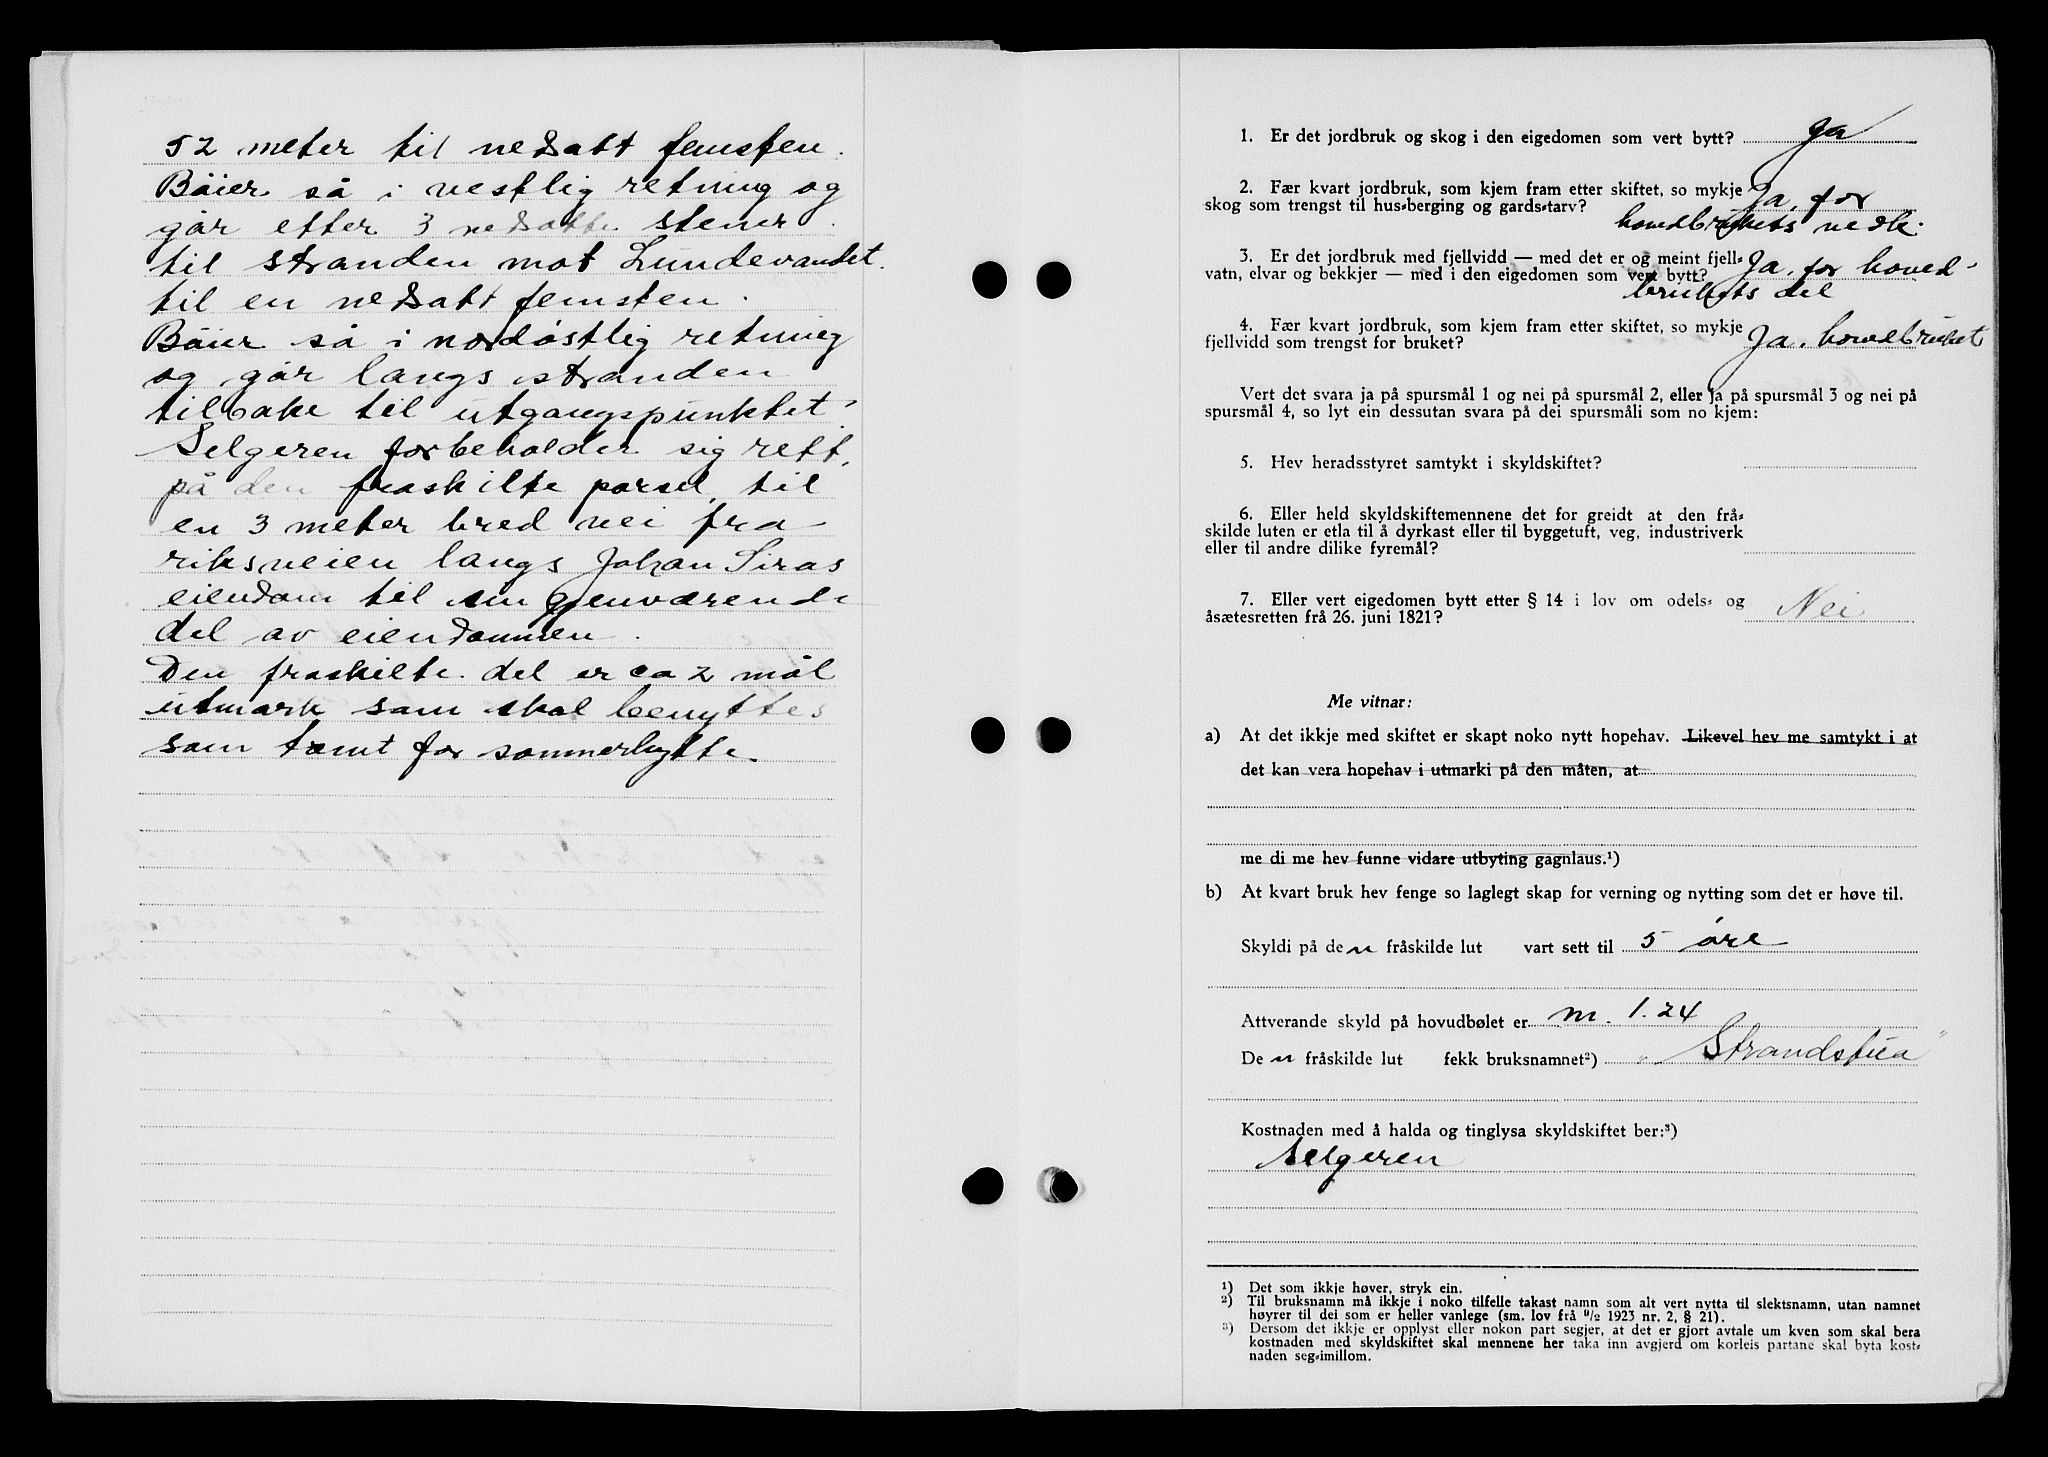 52 meter til nedsatt femsten.
Böier så i vestlig retning og
går efter 3 nedsatte stener
til stranden mot Lundevandet.
til en nedsatt femsten.
Böier så i nordöstlig retning
og går langs stranden
tilbake til utgangspunktet.
Selgeren forbeholder sig rett,
på den fraskilte parsel, til
en 3 meter bred vei fra
riksveien langs Johan Siras
eiendom til sin gjenværende
del av eiendommen.
Den fraskilte del er ca 2 mål
utmark som skal benyttes
som tomt for sommerhytte.
1. Er det jordbruk og skog i den eigedomen som vert bytt? Ja
2. Fær kvart jordbruk, som kjem fram etter skiftet, so mykje Ja, for
skog som trengst til hus-berging og gards-tarv? hovedbrukets vedk.
3. Er det jordbruk med fjellvidd — med det er og meint fjell- Ja, for hoved-
vatn, elvar og bekkjer — med i den eigedomen som vert bytt? brukets del
4. Fær kvart jordbruk, som kjem fram etter skiftet, so mykje
fjellvidd som trengst for bruket? Ja. hovedbruket
Vert det svara ja på spursmål 1 og nei på spursmål 2, eller ja på spursmål 3 og nei på
spursmål 4, so lyt ein dessutan svara på dei spursmåli som no kjem:
5. Hev heradsstyret samtykt i skyldskiftet?
6. Eller held skyldskiftemennene det for greidt at den frå-
skilde luten er etla til å dyrkast eller til byggetuft, veg, industriverk
eller til andre dilike fyremål?
7. Eller vert eigedomen bytt etter § 14 i lov om odels- og
åsætesretten frå 26. juni 1821? Nei
Me vitnar:
a) At det ikkje med skiftet er skapt noko nytt hopehav. Likevel hev me samtykt i at
det kan vera hopehav i utmarki på den måten, at
me di me hev funne vidare utbyting gagnlaus.¹)
b) At kvart bruk hev fenge so laglegt skap for verning og nytting som det er høve til.
Skyldi på den fråskilde lut vart sett til 5 öre
Attverande skyld på hovudbølet er m. 1.24
Den fråskilde lut fekk bruksnamnet²) "Strandstua"
Kostnaden med å halda og tinglysa skyldskiftet ber:³)
selgeren
¹) Det som ikkje høver, stryk ein.
²) Til bruksnamn må ikkje i noko tilfelle takast namn som alt vert nytta til slektsnamn, utan namnet
høyrer til dei som er heller vanlege (sm. lov frå ⁹/₂ 1923 nr. 2, § 21).
³) Dersom det ikkje er opplyst eller nokon part segjer, at det er gjort avtale um kven som skal bera
kostnaden med skyldskiftet skal mennene her taka inn avgjerd om korleis partane skal byta kost-
naden seg-imillom.